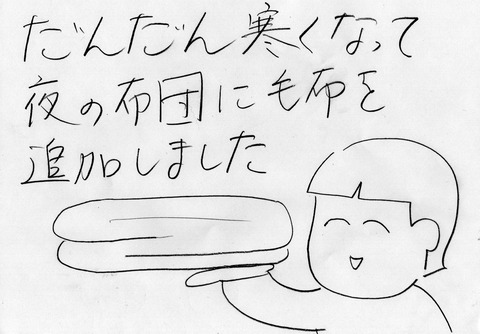 だんだん寒くなって
夜の布団に毛布を
追加しました